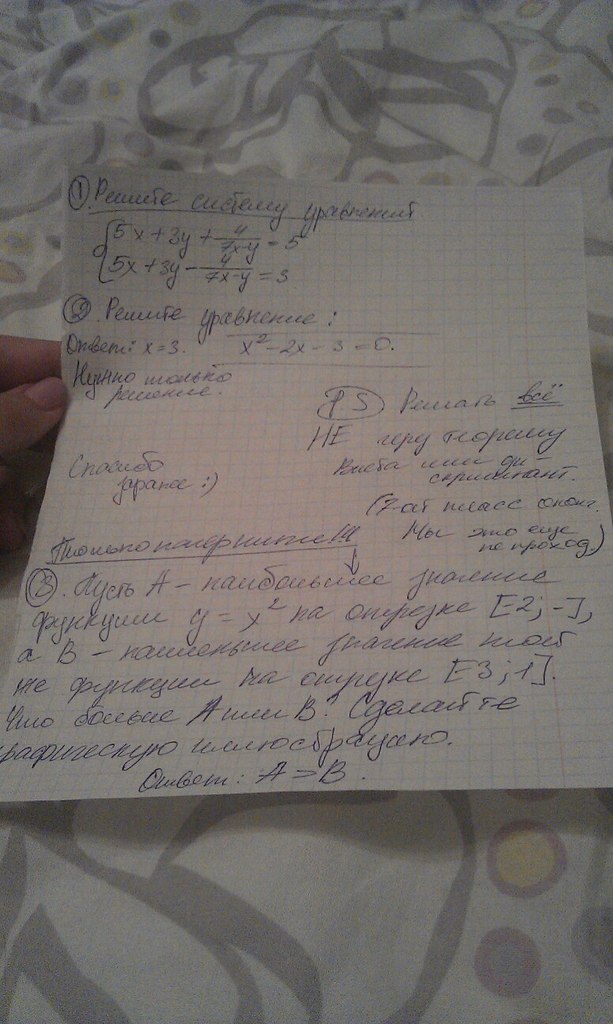 ① Решите систему уравнений
5x + 3y + 4/(7x-y) = 5
5x + 3y - 4/(7x-y) = 3
② Решите уравнение:
Ответ: x=3. x² - 2x - 3 = 0.
Нужно только
решение.
PS Решать всё
НЕ через теорему
Виета или ди-
скриминант.
Спасибо
заранее :)
(7-ой класс
Мы это еще
не проход.)
Только почерните!!!
③. Пусть A - наибольшее значение
функции y = x² на отрезке [-2; -],
а B - наименьшее значение той
же функции на отрезке [-3; 1].
Что больше A или B? Сделайте
графическую иллюстрацию.
Ответ: A > B.